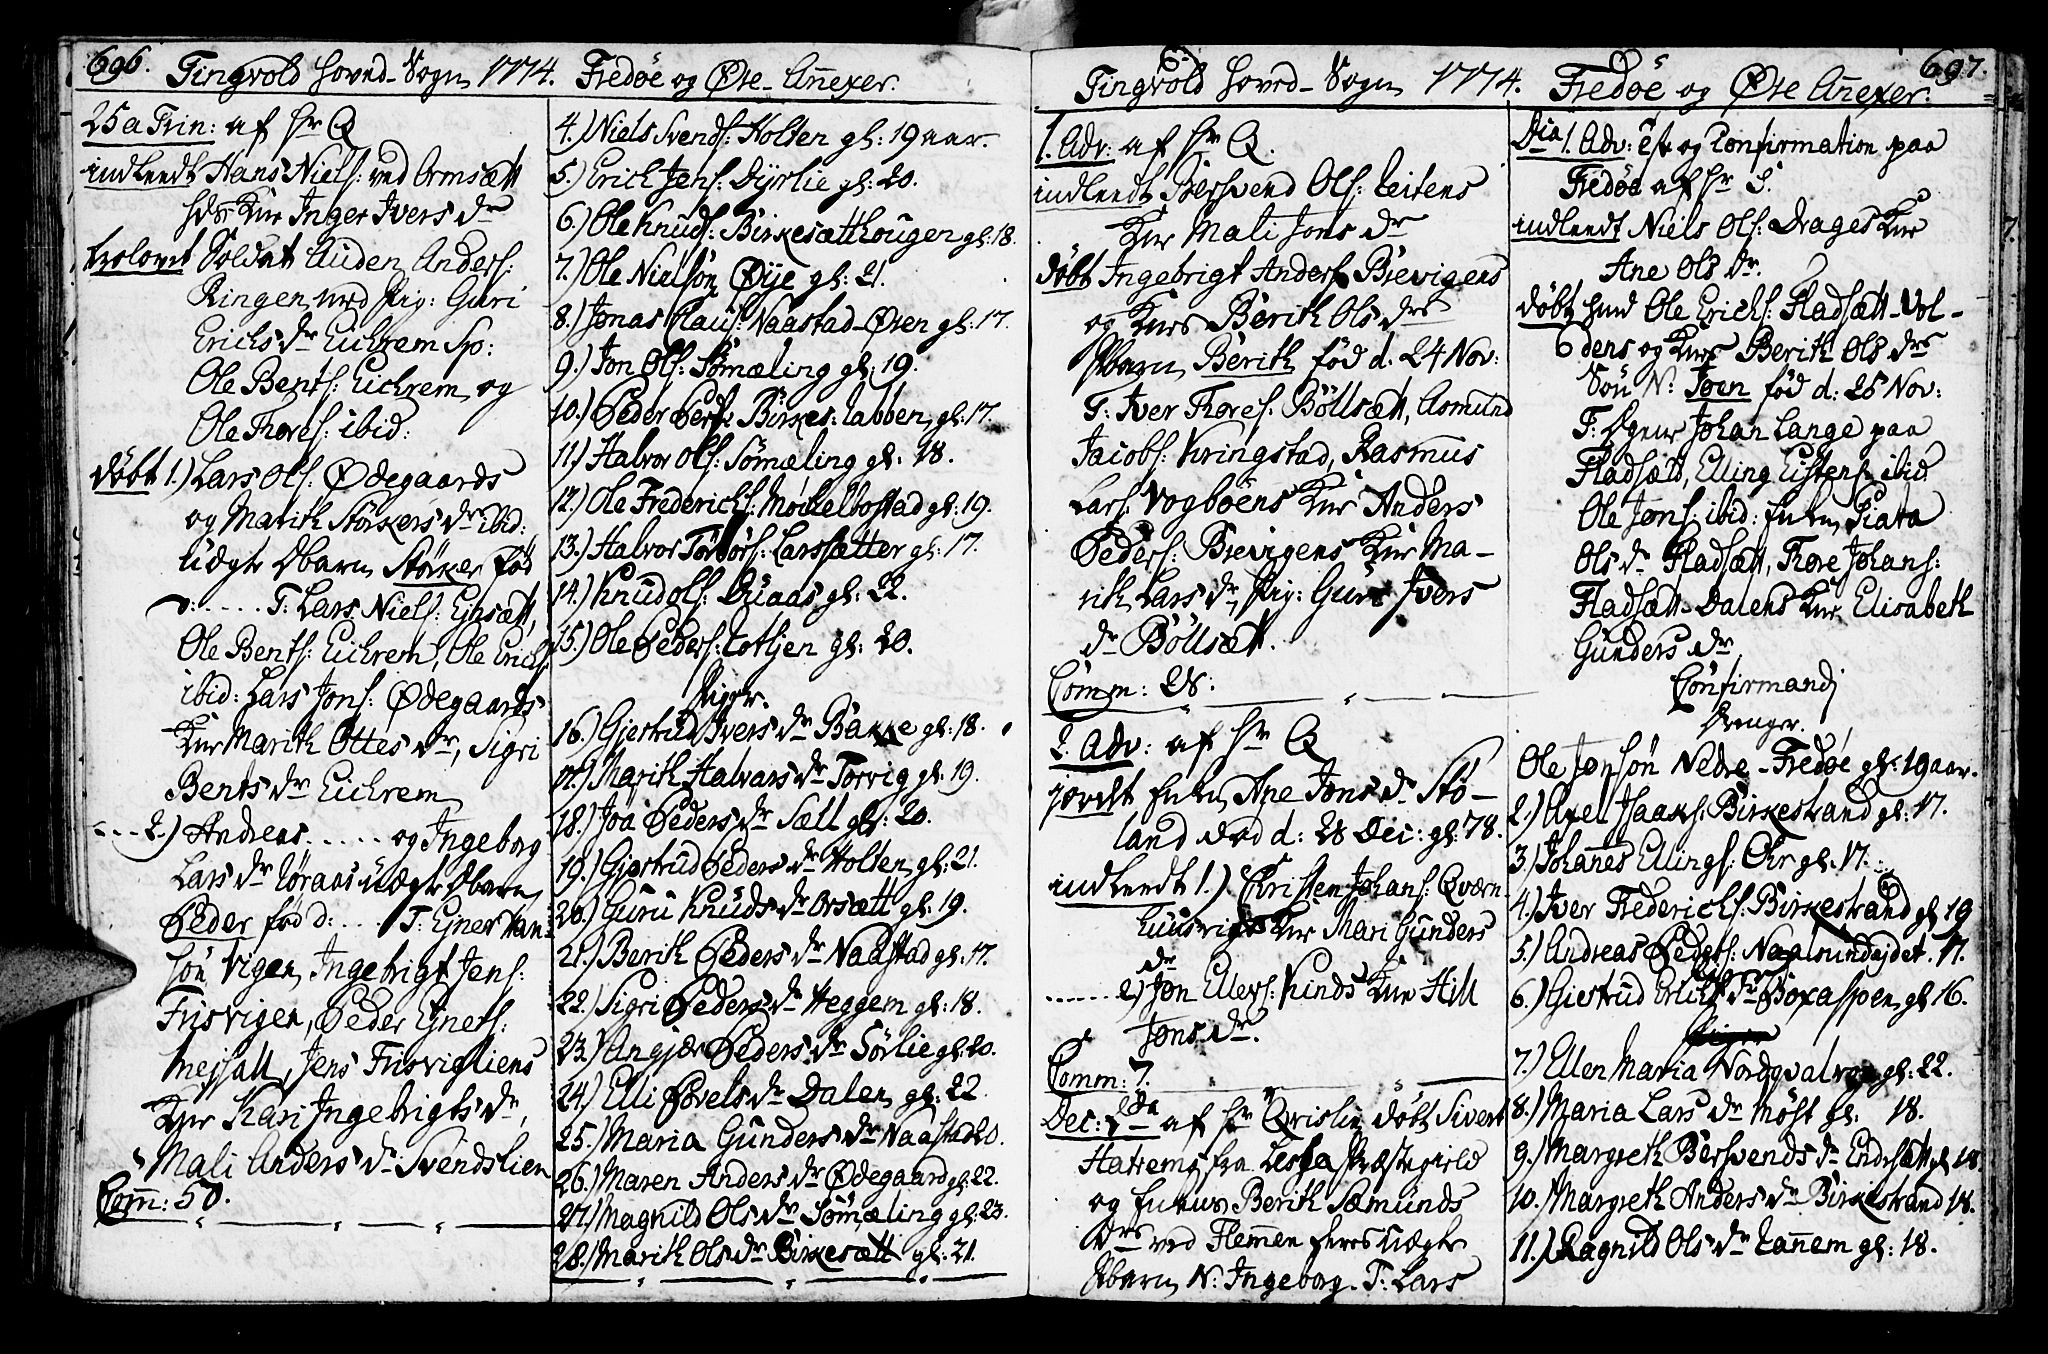 696. Tingvold Hoved-Sogn 1774.
25 a Trin: af Hr Q
indleedt Hans Niels: ved Ormsætt
hds Kur Inger Ivers dr
trolovet Soldatt Auden Anders:
Ringen med Pig: Guri
Erichs dr Eichrem Sp:
Ole Bents: Eichrem og
Ole Thores: ibid:
døbt 1.) Lars Ols: Ødegaards
og Marith Størkers dr ibid:
uægte Dbarn Størker fød
d: .... T: Lars Niels: Einsætt,
Ole Bents: Eichrem, Ole Erichs:
ibid: Lars Jons: Ødegaards
Kur Marith Ottes dr, Sigri
Bents dr Eichrem
... 2.) Andreas ..... og Ingeborg
Lars dr uægte Dbarn
Peder fød d: ... T: Ejner Han-
søn Vigen, Ingebrigt Jens:
Frisvigen, Peder Ejners:
Mejsall, Jens Frisvigliens
Kur Kari Ingebrigts dr,
Mali Anders dr Svendslien
Comm: 50.
Fredøe og Øre-Annexer.
4.) Niels Svends: Holten gl: 19 aar.
5.) Erich Jens: Dyrlie gl: 20.
6.) Ole Knuds: Birkesætthougen gl: 18.
7.) Ole Nielsøn Øye gl: 21.
8.) Jonas Claus: Naastad-Øren gl: 17.
9.) Jon Ols: Sømæling gl: 19.
10.) Peder Peders: Birkes: labben gl: 17.
11.) Halvor Ols: Sømæling gl: 18.
12.) Ole Friderichs: Møchelbostad gl: 19.
13.) Halvor Torbørs: Larssætter gl: 17.
14.) Knud Ols: Duaas gl: 22.
15.) Ole Peders: Totljen gl: 20.
Piger.
16.) Gjertrud Ivers dr Bakke gl: 18.
17.) Marith Halvars dr Torvig gl: 19.
18.) Joa Peders dr Sætt gl: 20.
19.) Gjertrud Peders dr Holten gl: 21.
20.) Guru Knuds dr Orsætt gl: 19.
21.) Berith Peders dr Naastad gl: 17.
22.) Sigri Peders dr Heggem gl: 18.
23.) Angjær Peders dr Sørlie gl: 20.
24.) Elli Povels dr Dalen gl: 22.
25.) Maria Gunders dr Naastad 20.
26.) Maren Anders dr Ødegaard gl: 22.
27.) Magnild Ols dr Sømæling gl: 23.
28.) Marith Ols dr Birkesætt gl: 21.
Tingvold Hoved-Sogn 1774.
1. Adv: af Hr Q.
indleedt Bersvend Ols: Leitens
Kur Mali Jons dr
døbt Ingebrigt Anders: Brevigens
og Kurs Berith Ols drs
Pbarn Berith fød d. 24 Nov:
T: Iver Thores: Böllsætt, Asmund
Jacobs: Kringstad, Rasmus
Lars: Vogbøens Kur Anders
Peders: Brevigens Kur Ma-
rith Lars dr, Pig: Guri Ivers
dr Böllsætt.
Comm: 28:
2. Adv: af Hr Q
jordt Enken Ane Jons dr Stø-
land død d: 28 Dec: gl: 78.
indleedt 1.) Christen Johans: Qværn-
huusvigs Kur Mari Gunders
dr
...... 2) Jon Ellers: Kinds Kur Hill
Jons dr.
Comm: 7.
Dec: 2da af Hr Qvislin døbt Sivert
Hatrems fra Lessø Præstegield
og Enkens Berith Sæmunds
drs ved Flemmen deres uægte
Pbarn N: Ingeborg. T: Lars
Fredøe og Øre Annexer. 697.
Dia 1. Adv: et og Confirmation paa
Fredøe af Hr S.
indleedt Niels Ols: Drages Kur
Ane Ols dr.
døbt hmd Ole Erichs: Fladsætt-Vol-
dens og Kurs Berith Ols drs
Søn N: Joen fød d: 25 Nov:
T: Degnen Johan Lange paa
Fladsætt, Elling Eistens: ibid
Ole Jons: ibid: Enken Siata
Ols dr Fladsætt, Thore Johans:
Fladsætt-Dalens Kur Elisabeth
Gunders dr
Confirmandi
Drenger.
Ole Jonsøn Nedre-Fredøe gl: 19 aar.
2.) Axel Isaachs: Birkestrand gl: 17.
3.) Johannes Ellings: Ohr gl: 17.
4.) Iver Friderichs: Birkestrand gl: 19
5.) Andreas Peders: Naalsundejdet. 17.
Piger
6.) Giertrud Erichs dr Boxaspen gl: 16.
7.) Ellen Maria Nordqvalvog gl: 22.
8.) Maria Lars dr Høst gl: 18.
9.) Margreth Bersvends dr Endresætt gl: 18
10.) Margreth Anders dr Birkestrand 18.
11.) Ragnild Ols dr Hannem gl: 18.